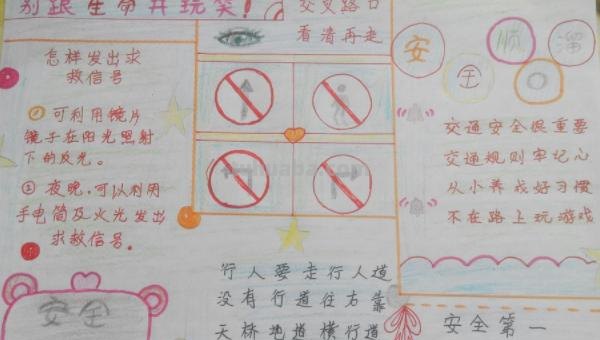 别跟生命开玩笑！
交叉路口
看清再走
怎样发出求
救信号
① 可利用镜片
镜子在阳光照射
下的反光。
② 夜晚，可以利用
手电筒及火光发出
求救信号。
安全
行人要走行人道
没有行道往右靠
天桥地道横行道
安全顺溜
交通安全很重要
交通规则牢记心
从小养成好习惯
不在路上玩游戏
安全第一